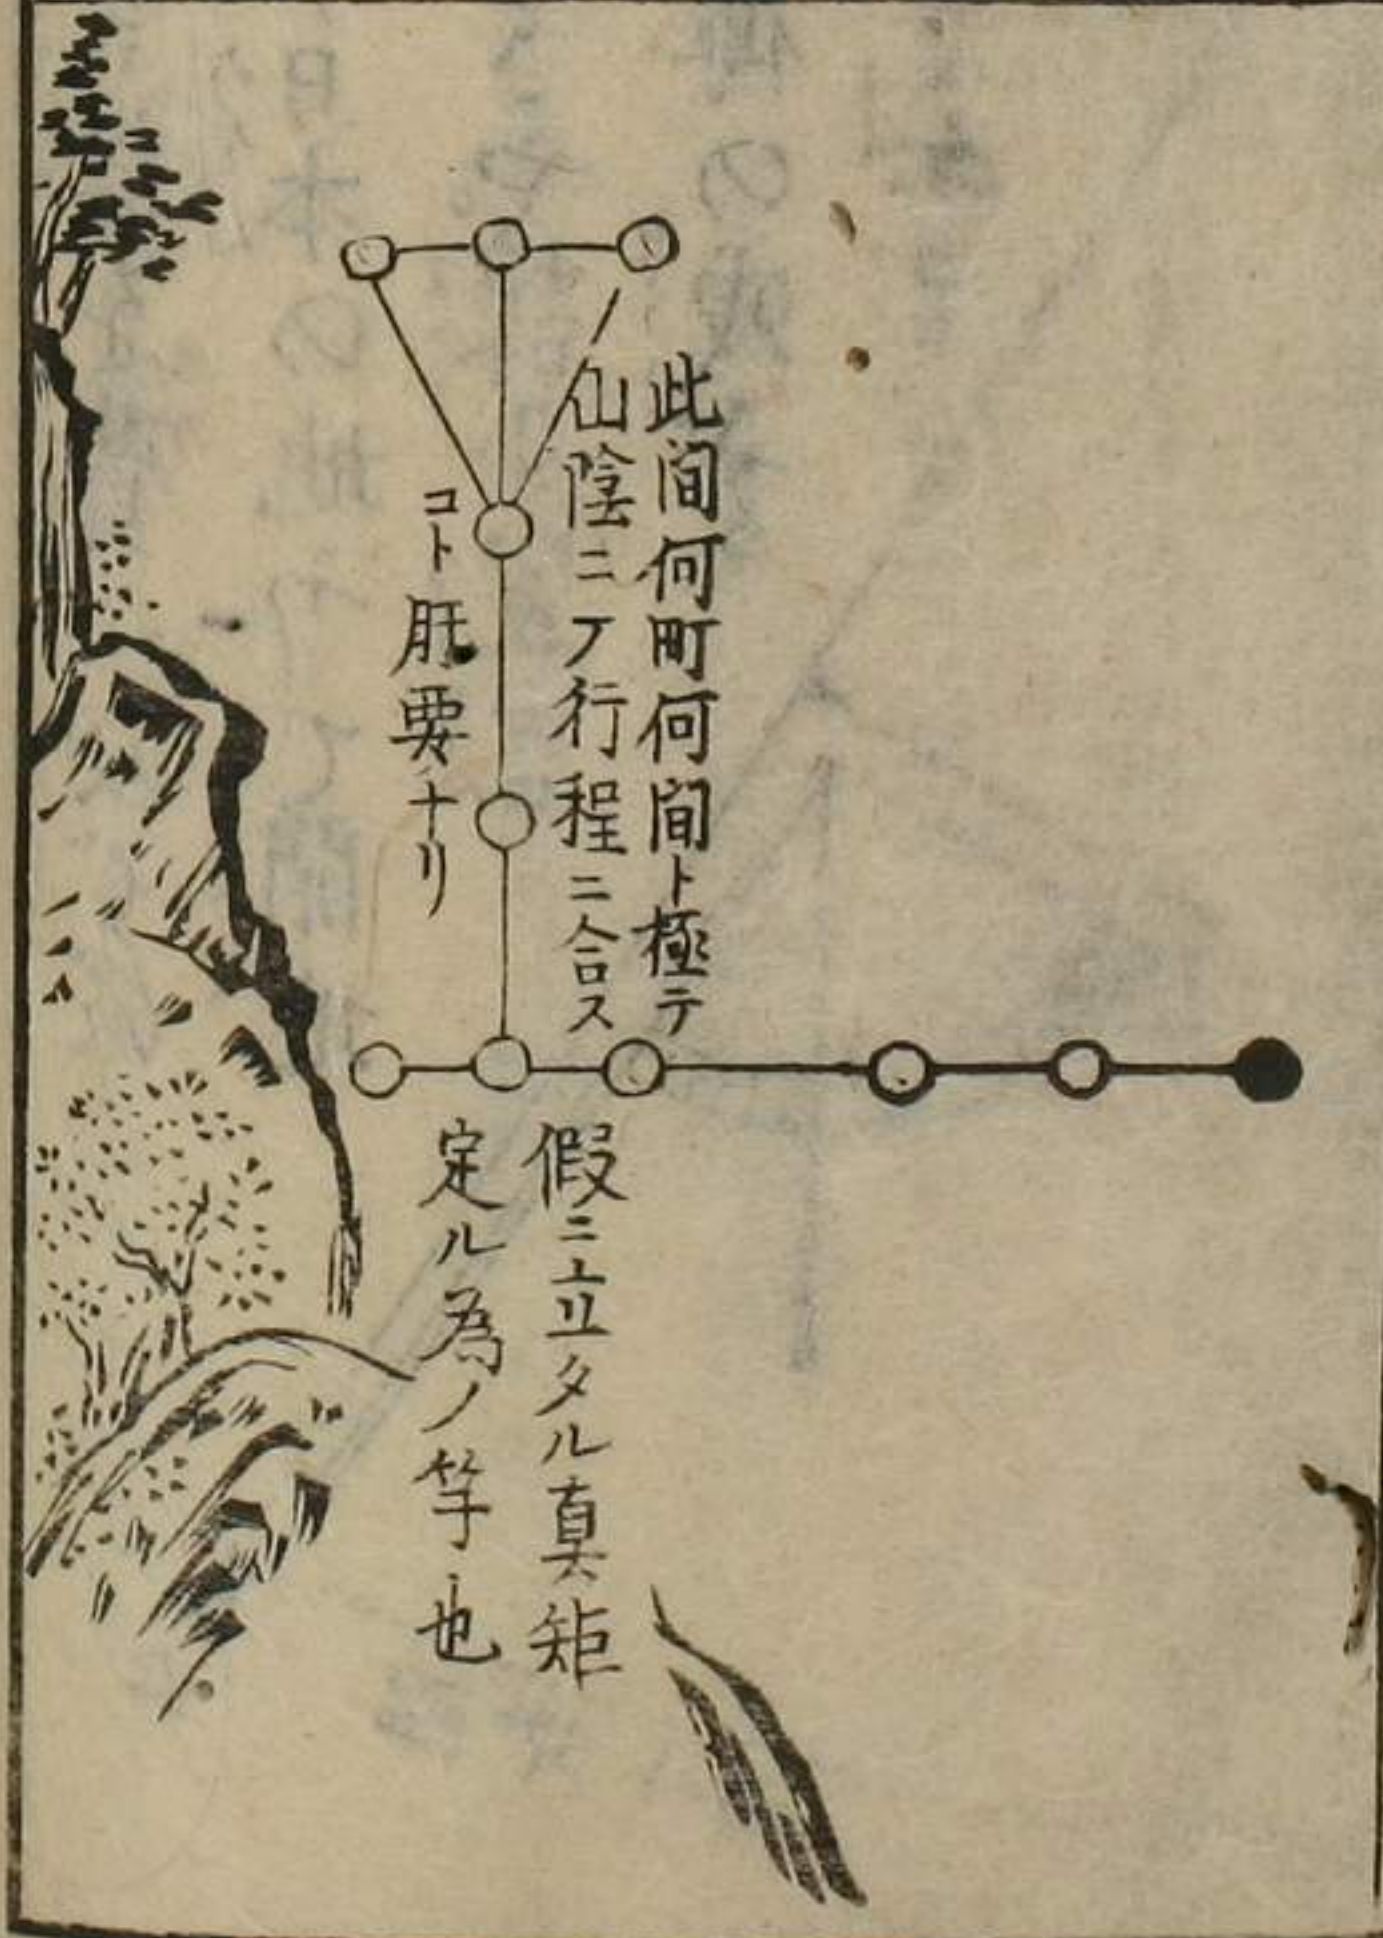 此間何町何間ト極テ
山陰ニテ行程ニ合ス
コト肝要ナリ
假ニ立タル真矩
定ル為ノ竿也